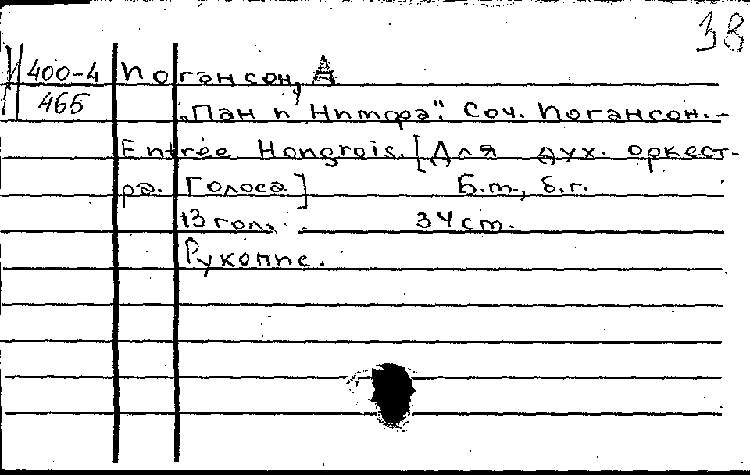 38
400-4
465
Иогансон, А
„Пан и Нимфа". Соч. Иогансон. –
Entrée Hongrois. [Для дух. оркест-
ра. Голоса] Б.м., б.г.
13 гол. 34 ст.
Рукопис.